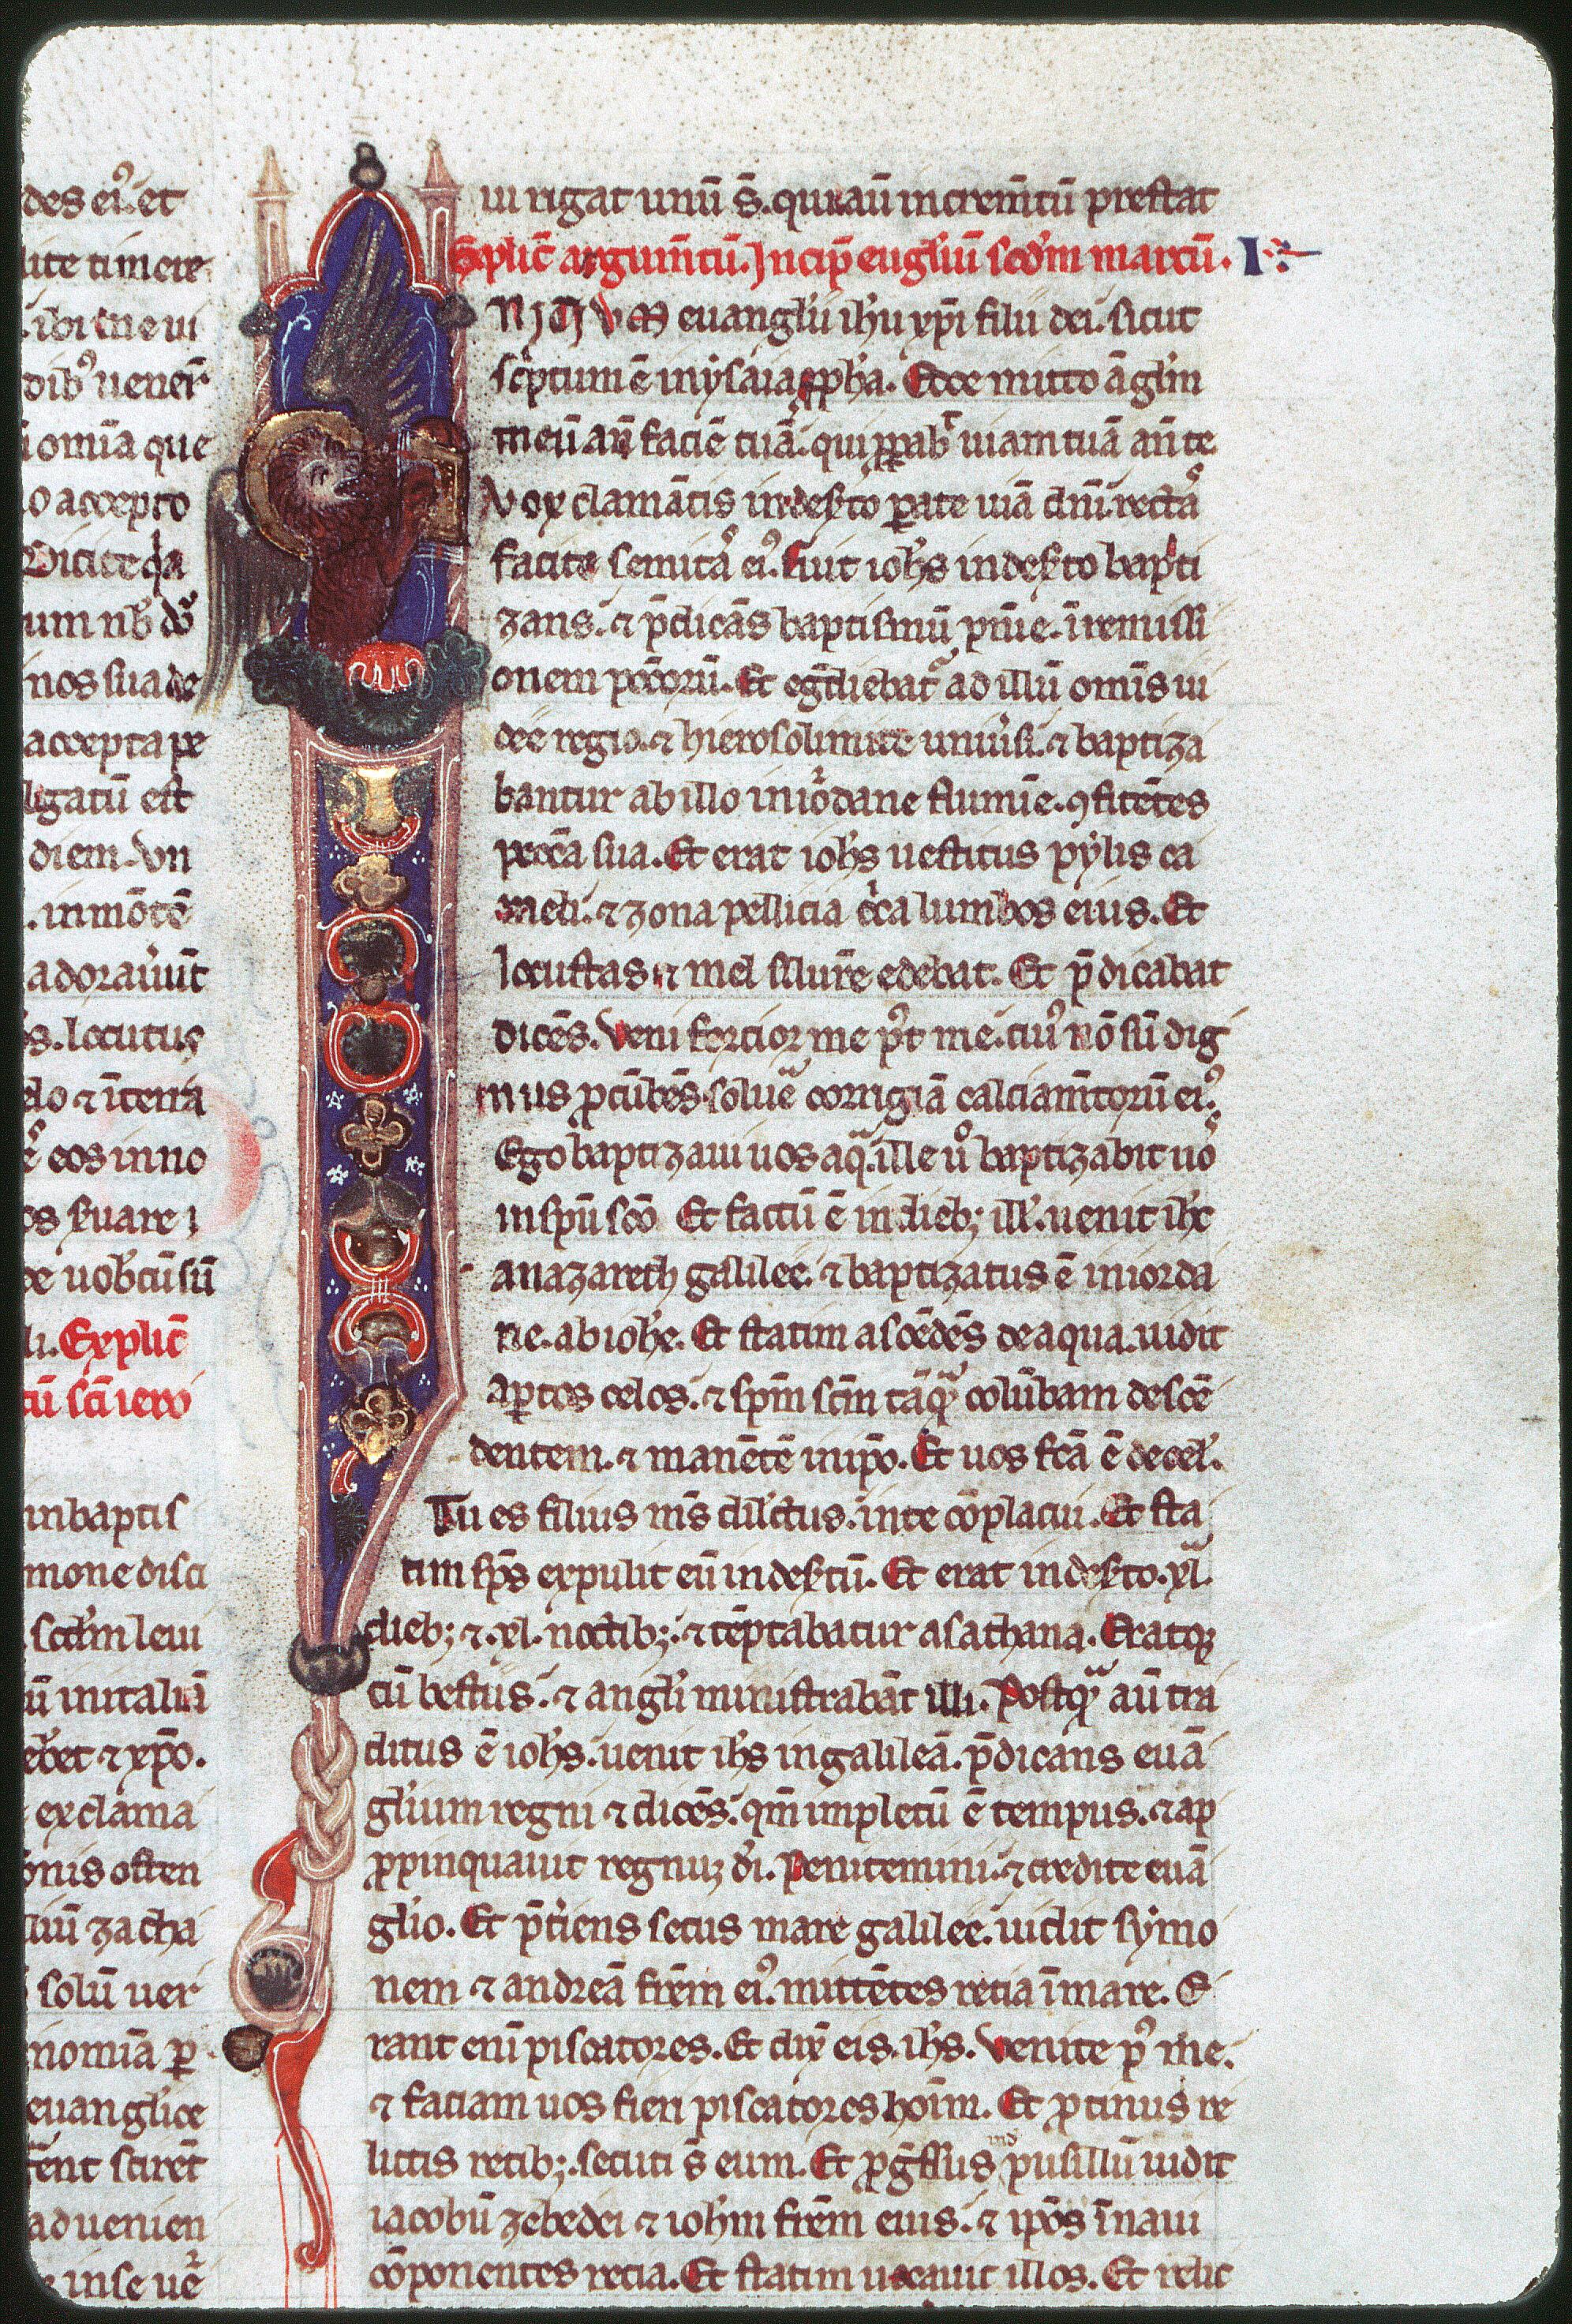 des eiꝰ. et
lite timere
ibi me ui
dibꝰ uener̄
omīa que
o accepto
Dicite qͥa
um nͦb dͦs
nos suade
accepta pe
ligatū est
diem. Vn
. in mōtē
adorauͬūt
s. locutus
elo ⁊ ī terra
eos in no
os ẜuare
ce uobͨcū sū
li. Explic̄
tū sc̄i iero
in baptis
mone disci
scd̄m leui
ū in italia
ebet ⁊ xp̄o.
exclama
onis osten
riū zacha
solū uer
nomīa ꝑ
euangl̓ice
rent sciret̄
aduenien
in se uē
ui rigat unū s̄. qui aū incrēm̄tū prestat
Explic̄ argum̄tū. Incip̄ euāgl̓iū scd̓m marcū. I
NITIVM euangl̓ii ih̓u xp̄i filii dei. sicut
sc̓ptum ē in ysaia ꝓph̓a. Ecce mitto āgl̓m
meū an̄ faciē tuā. qui p̄ꝑabᵗ uiam tuā an̄ te
Vox clamātis in deẜto ꝑate uiā dn̄i. rectaˢ
facite semitaˢ eiꝰ. Fuit ioh̓s in deẜto bapti
zans. ⁊ p̄dicās baptismū pn̄īe. ī remissi
onem pccōrū. Et eg̓diebatᷓ ad illū om̄is iu
dee regio. ⁊ hierosolimite uniu̓si. ⁊ baptiza
bantur ab illo in iordane flumīe. ꝯfitētes
pecc̄a sua. Et erat ioh̓s uestitus pylis ca
meli. ⁊ zona pellicia cͥca lumbos eius. Et
locustas ⁊ mel siluēre edebat. Et p̄dicabat
dicēs. Veni fortior me pꝰt me. ciuꝰ nō sū dig
nus ꝓcūbēs. soluē corrigiā calciam̄torū eiꝰ.
Ego baptizaui uos aqᷓ. ille uͦ baptizabit uoˢ
in sp̄u sc̄o Et factū ē in dieb; ill̓. uenit ih̄c
a nazareth galilee. ⁊ baptizatus ē in iorda
ne. ab ioh̓e. Et statim ascēdēs de aqua. uidit
aꝑtos celos. ⁊ sp̄m sc̄m tāqᷓ colūbam descē
dentem. ⁊ manētē in ip̄o. Et uos fc̄a ē de cel̓.
Tu es filius m̄s dil̓ctus. in te cōplacui. Et sta
tim sp̄s expulit eū in deẜtū. Et erat in deẜto. xl.
dieb; ⁊. xl. noctib;. ⁊ tēptabatur a sathana. Eratqꝫ
cū bestiis. ⁊ angl̓i ministrabāt illi. Postqᷓ aū tra
ditus ē ioh̓s. uenit ih̓s in galileā. p̄dicans euā
gl̓ium regni ⁊ dicēs. qm̄ impletū ē tempus. ⁊ ap
ꝓpinquauit regnuꝫ dī. Penitemini. ⁊ credite euā
gl̓io. Et p̄t̓iens secus mare galilee. uidit symo
nem ⁊ andreā frēm eiꝰ. mittētes retia ī mare. E
rant enī piscatores. Et dix̄ eis. ih̓s. Venite pꝰ me.
⁊ faciam uos fieri piscatores hoīm. Et ꝓtinus re
lictis retib;. secuti s̄ eum. Et ꝓg̓ssus ind̓ pusillū uidit
iacobū zebedei ⁊ ioh̓m frēm eius. ⁊ ip̄os ī naui
cōponentes retia. Et statim uocauit illos. Et relic